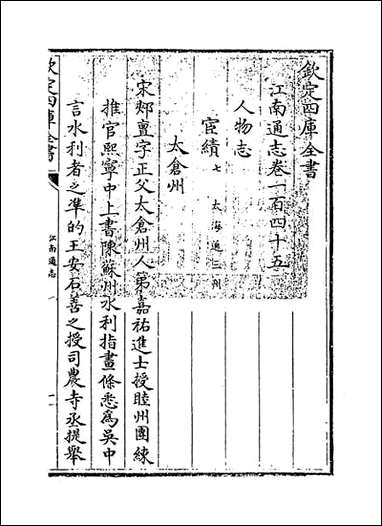 欽定四庫全書
江南通志卷一百四十五
人物志
宦績 七 太海通三州
太倉州
宋郟亶字正父太倉州人第嘉祐進士授睦州團練
推官熙寧中上書陳蘇州水利指畫條悉為吳中
言水利者之準的王安石善之授司農寺丞提舉
欽定四庫全書
江南通志
一